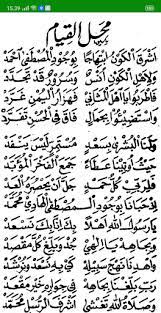 15.39
محل القيام
اشرق الكون ابتهاجا بوجود المصطفى احمد
ولاهل الكون انس وسرور قد تجدد
فاطربوا يا اهل المثاني فهزار اليمن غرد
واستضيئوا بجمال فاق في الحسن تفرد
ولنا البشرى بسعد مستمر ليس ينفد
حيث اوتينا عطاء جمع الفخر المؤبد
فلربي كل حمد جل ان يحصره العد
اذ حبانا بوجود المصطفى الهادي محمد
يا رسول الله اهلا بك انا بك نسعد
وبجاهه يا الهي جد وبلغ كل مقصد
واهدنا نهج سبيله كي به نسعد ونرشد
وصلاة الله تغشى اشرف الرسل محمد